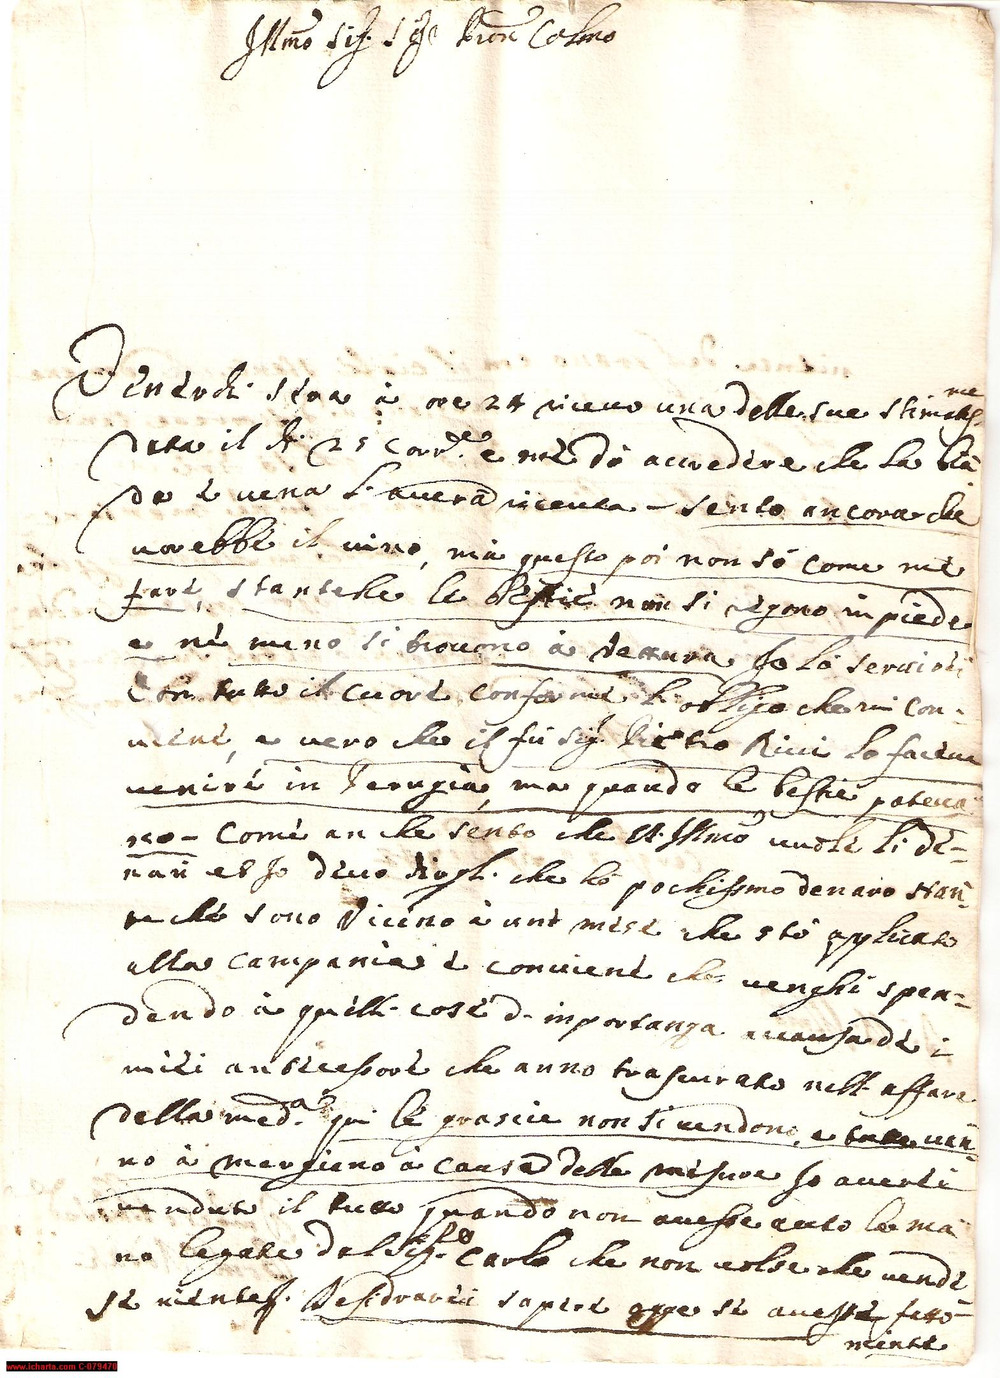 Illmo Sig. Sig.e Pron Colmo
Venerdi sera à ore 24 riceuo una delle sue stimatss.me
data il di 25 Corr.e e mi dò accredere che la bia
da e uena l'auerà riceuta - sento ancora che
uorebbe il uino, ma questo poi non sò come mi
fare, stanteche le bestie non si regono in piede
e ne meno si trouono à uettura Io la seruirei
Con tutto il cuore conforme l'obligo che mi con-
uiene, e uero che il fù Sig. Pietro Ricci lo faceua
uenire in Perugia, ma quando le bestie poteua
no - Come anche sento che VS Illmo uuole li de-
nari et Io deuo dirgli che hò pochissimo denaro stan-
te che sono Vicino à un mese che stò applicato
alla campania e conuiene che uenghi spen-
dendo à quelli cose d'inportanza accausa de i
miei antecessori che anno trascurato nell'affare
della med.a qui le grascie non si uendono, e tutte uan-
no à Mergiano à causa delle misure Io auerei
uenduto il tutto quando non auesse auto le ma
no legate dal Sig.e Carlo che non uolse che uende
se niente. Desidrarei sapere se auesse fatto
niente
www.icharta.com C-079470